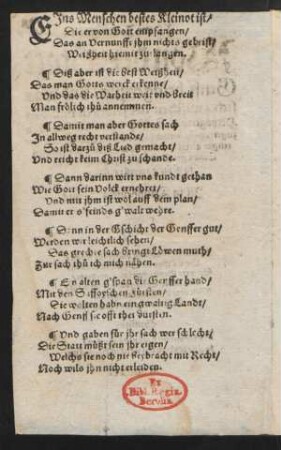 EIns Menschen bestes Kleinot ist/
Die er von Gott empfangen/
Das an Vernunfft jhm nichts gebrist/
Weißheit hiemit zu langen.
¶ Diß aber ist die best Weißheit/
Das man Gottes werck erkenne/
Vnd das die Warheit weit vnd breit
Man frölich thü annemmen.
¶ Damit man aber Gottes sach
In allweg recht verstande/
So ist darzü diß Lied gemacht/
Vnd reicht keim Christ zu schande.
¶ Dann darinn wirt vns kundt gethan
Wie Gott sein Volck ernehret/
Vnd mit jhm ist wol auff dem plan/
Damit er s'feinds g'walt wehre.
¶ Dann in der Gschicht der Genffer gut/
Werden wir leichtlich sehen/
Das grechte sach bringt Löwen muth/
Zur sach thü ich mich nähen.
¶ Ein alten g'span die Genffer hand/
Mit den Saffoyschen Fürsten/
Die wolten habn eingwaltig Landt/
Nach Genff sie offt thet dürsten.
¶ Vnd gaben für jhr sach wer schlecht/
Die Statt müßt sein jhr eigen/
Welchs sie noch nie gebracht mit Recht/
Noch wils jhn nicht erleiden.
Ex
Bibl. Regia
Berolin.